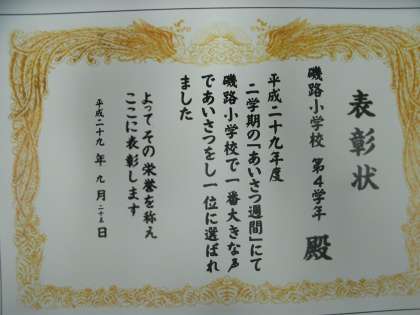 表彰状
磯路小学校 第4学年 殿
平成二十九年度
二学期の「あいさつ週間」にて
磯路小学校で一番大きな声
であいさつをし一位に選ばれ
ました
よってその栄誉を称え
ここに表彰します
平成二十九 年 九 月 二十五 日